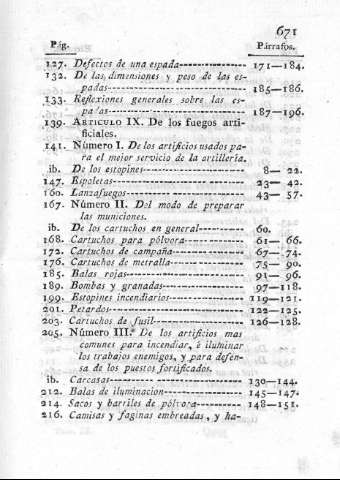 671
Pág. Párrafos.
127. Defectos de una espada 171—184.
132. De las dimensiones y peso de las es-
padas 185—186.
133. Reflexiones generales sobre las es-
padas 187—196.
139. ARTICULO IX. De los fuegos arti-
ficiales.
141. Número I. De los artificios usados pa-
ra el mejor servicio de la artillería.
ib. De los estopines 8— 22.
147. Espoletas 23— 42.
160. Lanzafuegos 43— 57.
167. Número II. Del modo de preparar
las municiones.
ib. De los cartuchos en general 60.
168. Cartuchos para pólvora 61— 66.
172. Cartuchos de campaña 67— 74.
176. Cartuchos de metralla 75— 90.
185. Balas rojas 91— 96.
189. Bombas y granadas 97—118.
199. Estopines incendiarios 119—121.
201. Petardos 122—125.
203. Cartuchos de fusil 126—128.
205. Número III.º De los artificios mas
comunes para incendiar, é iluminar
los trabajos enemigos, y para defen-
sa de los puestos fortificados.
ib. Carcasas 130—144.
212. Balas de iluminacion 145—147.
214. Sacos y barriles de pólvora 148—151.
216. Camisas y faginas embreadas, y ha-